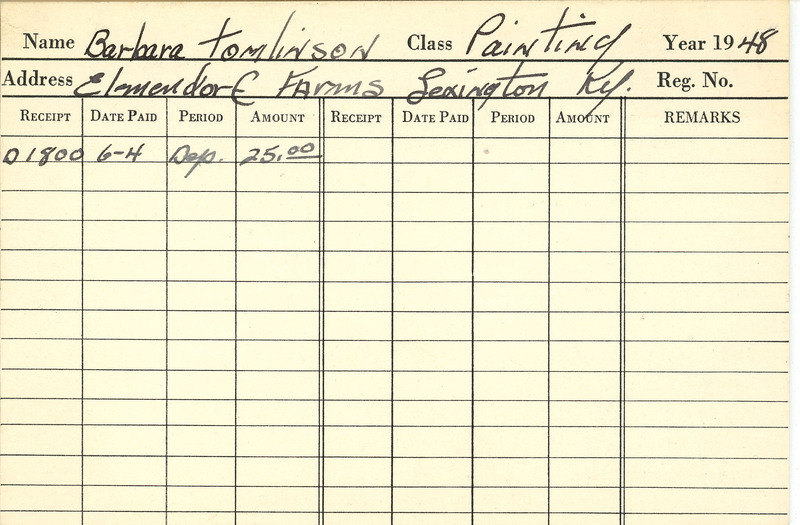 Name Barbara Tomlinson Class Painting Year 1948
Address Elmendorf Farms Lexington Ky. Reg. No.
RECEIPT DATE PAID PERIOD AMOUNT RECEIPT DATE PAID PERIOD AMOUNT REMARKS
D1800 6-4 Dep. 25.00